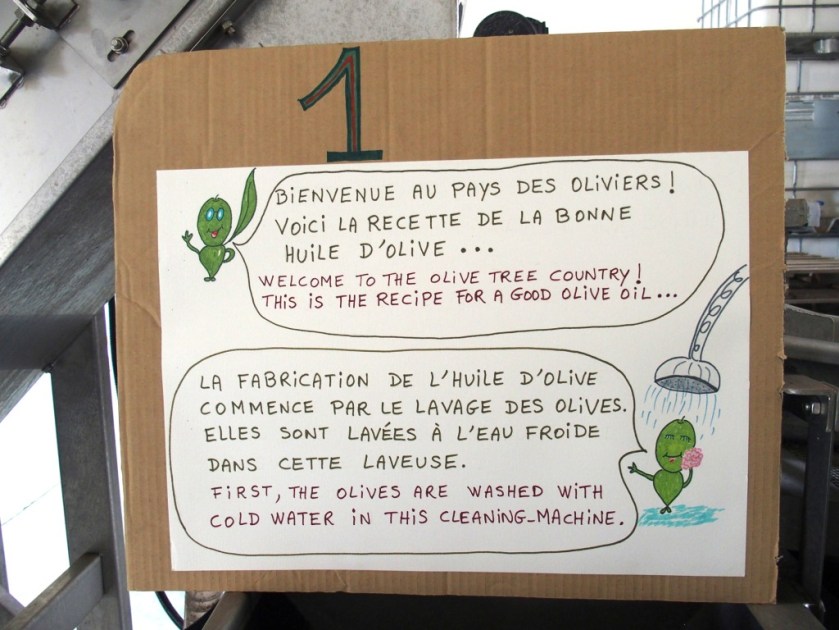 1
BIENVENUE AU PAYS DES OLIVIERS !
VOICI LA RECETTE DE LA BONNE
HUILE D'OLIVE ...
WELCOME TO THE OLIVE TREE COUNTRY !
THIS IS THE RECIPE FOR A GOOD OLIVE OIL ...
LA FABRICATION DE L'HUILE D'OLIVE
COMMENCE PAR LE LAVAGE DES OLIVES.
ELLES SONT LAVÉES À L'EAU FROIDE
DANS CETTE LAVEUSE.
FIRST, THE OLIVES ARE WASHED WITH
COLD WATER IN THIS CLEANING_MACHINE.